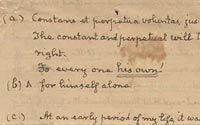 (a.) Constans et perpetua voluntas, jus
The constant and perpetual will t
right.
To every one his own!
(b) A for himself alone
(c.) At an early period of my life it was